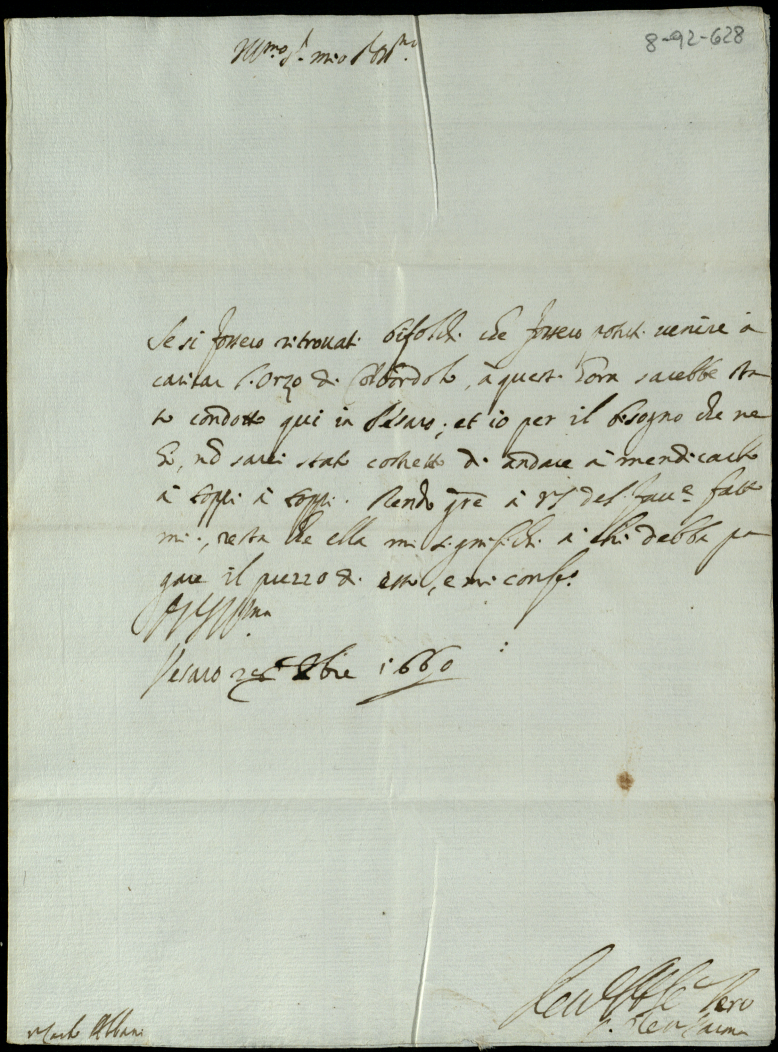 8-92-628
Ill.mo S.r mio
Se si fossero ritrovati bifolchi che fossero potuti venire à
caricar l'orzo di Colbordolo, à quest'hora sarebbe sta
to condotto qui in Pesaro; et io per il bisogno che ne
hò, nō sarei stato costretto di andare à mendicarlo
à coppi à coppi. Rendo gr̄e à VS del fau.re fatto
mi, resta che ella mi significhi à chi debba pa
gare il prezzo di esso, e mi conf.o
Pesaro Xbre 1660
Ser.
Carlo Albani